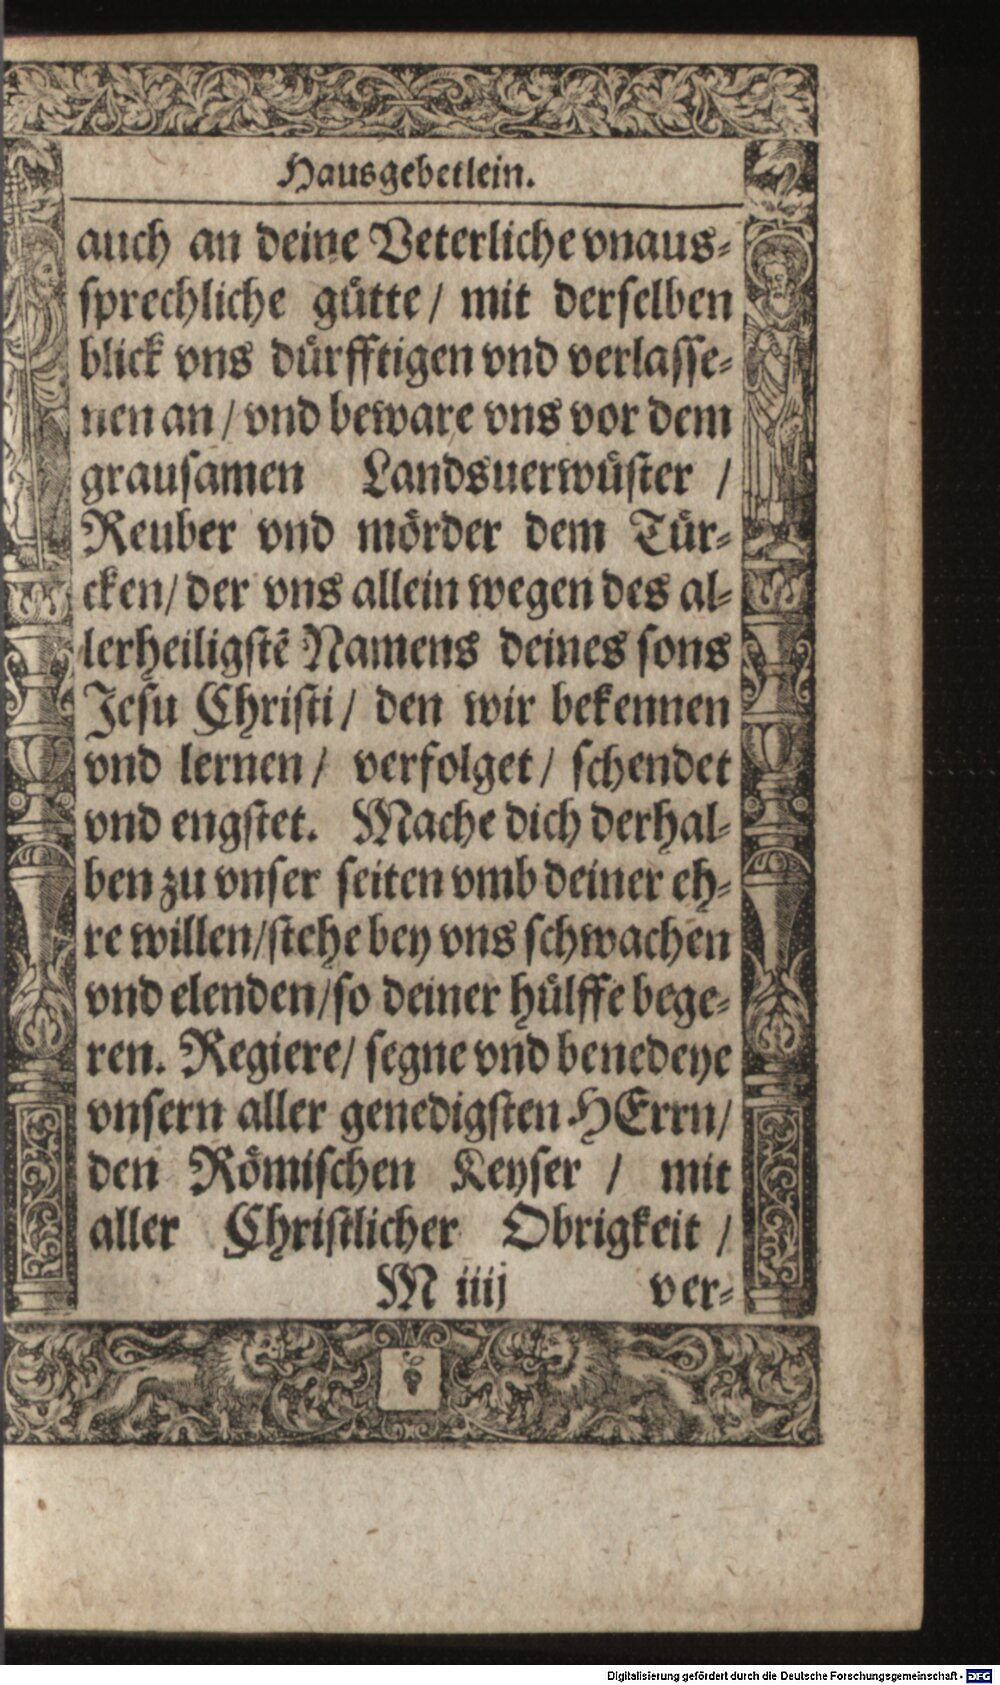 Hausgebetlein.
auch an deine Veterliche vnaus-
sprechliche gütte / mit derselben
blick vns dürfftigen vnd verlasse-
nen an / vnd beware vns vor dem
grausamen Landsuerwüster /
Reuber vnd mörder dem Tür-
cken / der vns allein wegen des al-
lerheiligstē Namens deines sons
Jesu Christi / den wir bekennen
vnd lernen / verfolget / schendet
vnd engstet. Mache dich derhal-
ben zu vnser seiten vmb deiner eh-
re willen / stehe bey vns schwachen
vnd elenden / so deiner hülffe bege-
ren. Regiere / segne vnd benedeye
vnsern aller genedigsten HErrn /
den Römischen Keyser / mit
aller Christlicher Obrigkeit /
M iiij ver-
Digitalisierung gefördert durch die Deutsche Forschungsgemeinschaft - DFG